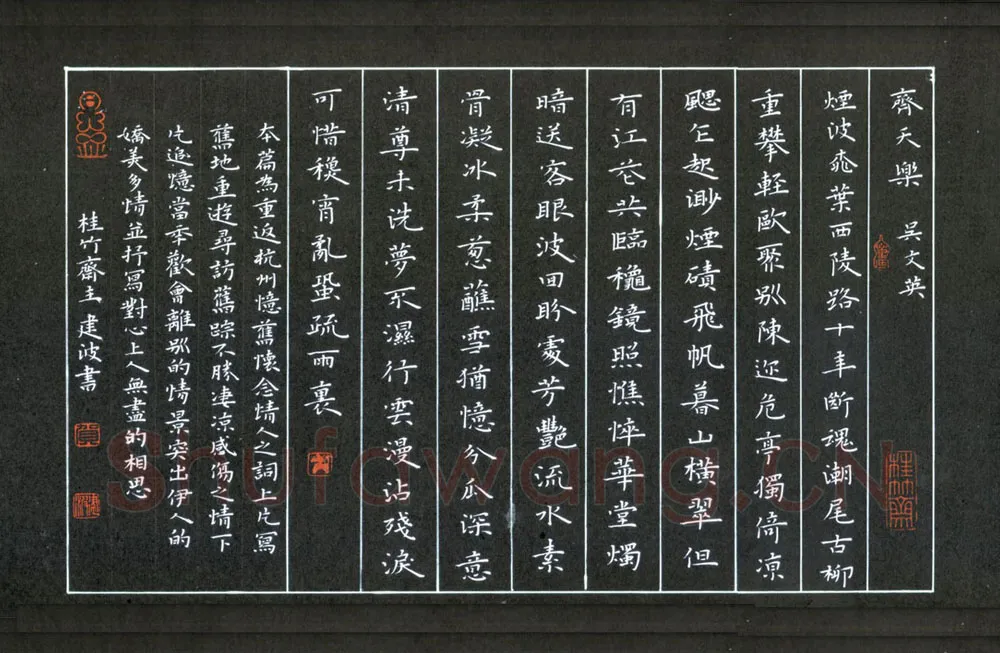 齊天樂 吳文英
煙波桃葉西陵路十年斷魂潮尾古柳
重攀輕歐聚別陳迹危亭獨倚涼
颸乍起渺煙磧飛帆暮山橫翠但
有江花共臨穐鏡照憔悴華堂燭
暗送客眼波回盼處芳艷流水素
骨凝冰柔蔥蘸雪猶憶分瓜深意
清尊未洗夢不濕行雲漫沾殘淚
可惜穐宵亂蛩疏雨裏
本篇為重返杭州憶舊懷念情人之詞上片寫
舊地重遊尋訪舊踪不勝淒涼感傷之情下
片追憶當年歡會離別的情景突出伊人的
嬌美多情並抒寫對心上人無盡的相思
桂竹齋主建波書
Shufawang.CN